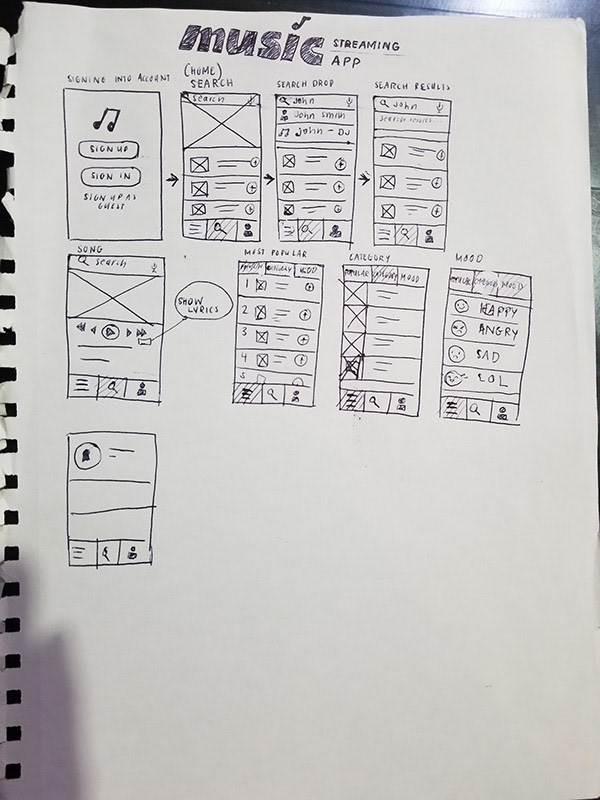 music STREAMING
APP
SIGNING INTO ACCOUNT
SIGN UP
SIGN IN
SIGN UP AS
GUEST
(HOME)
SEARCH
Search
SEARCH DROP
John
John Smith
John - DJ
SEARCH RESULTS
John
SONG
Search
SHOW
LYRICS
MOST POPULAR
CATEGORY MOOD
1
2
3
4
5
CATEGORY
POPULAR CATEGORY MOOD
MOOD
POPULAR CATEGORY MOOD
HAPPY
ANGRY
SAD
LOL